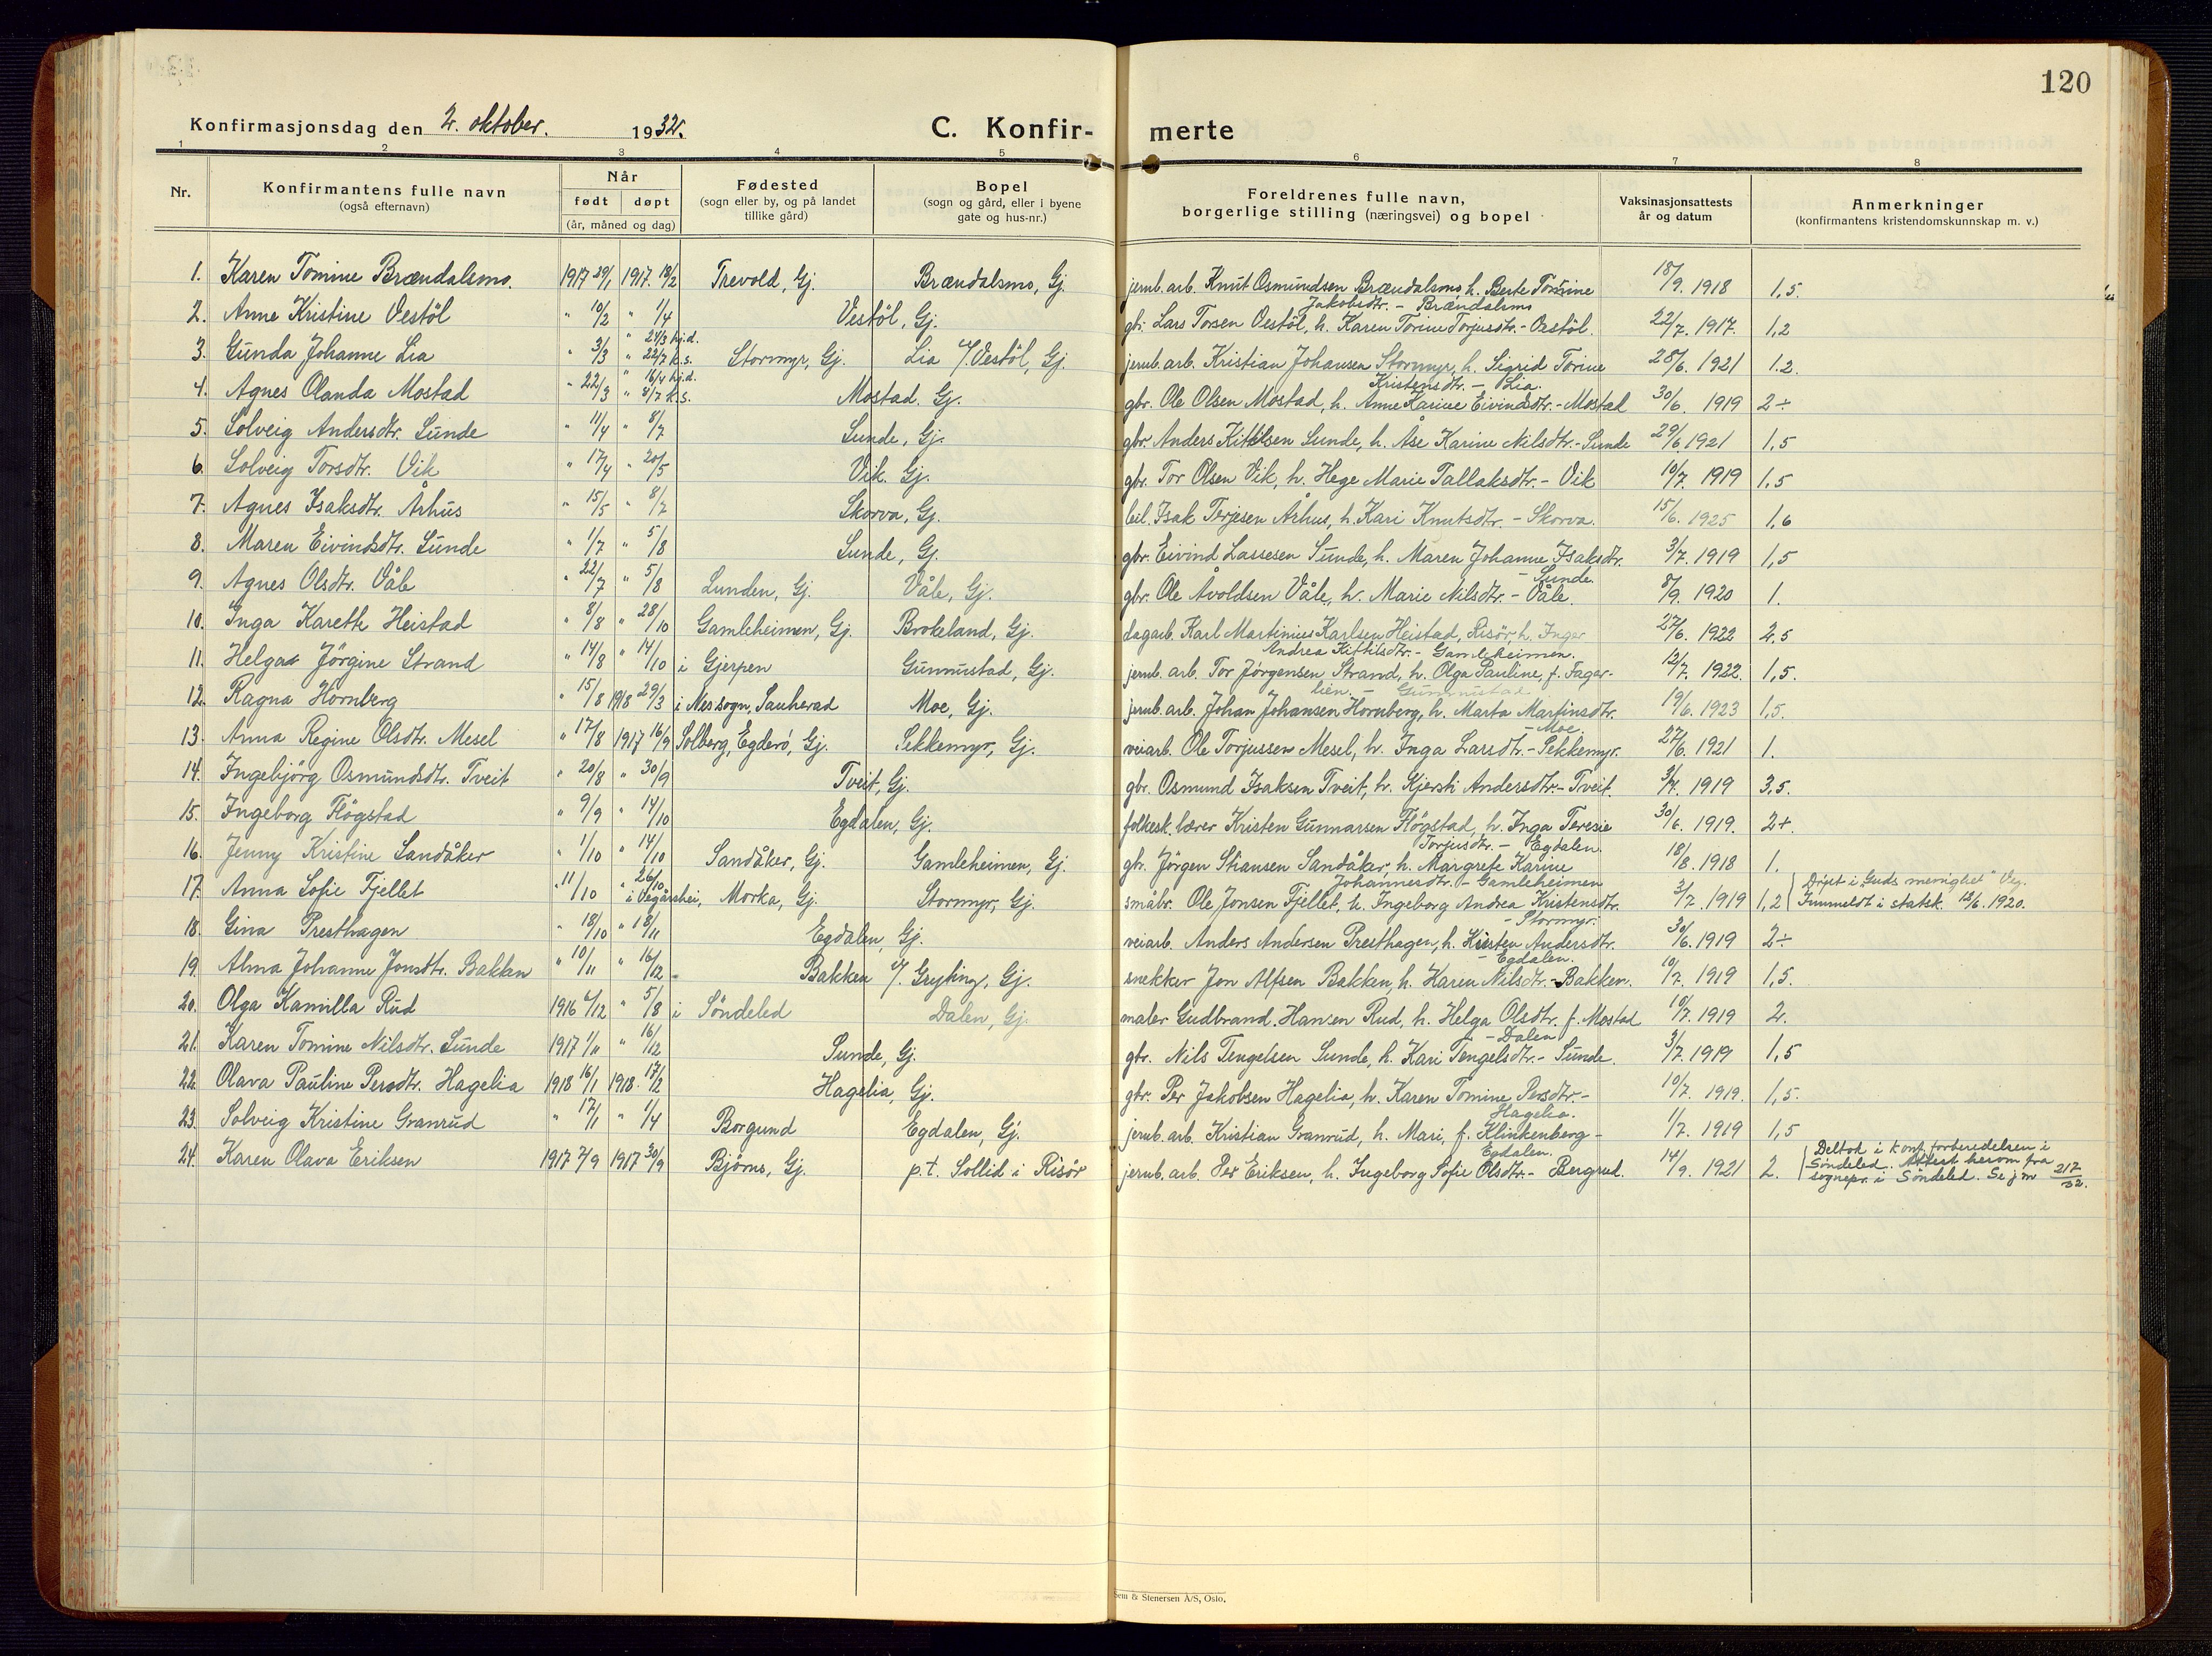 120
Konfirmasjonsdag den 2. oktober. 1932. C. Konfirmerte
1 2 3 4 5 6 7 8
Nr. Konfirmantens fulle navn (også efternavn) Når født døpt (år, måned og dag) Fødested (sogn eller by, og på landet tillike gård) Bopel (sogn og gård, eller i byene gate og hus-nr.) Foreldrenes fulle navn, borgerlige stilling (næringsvei) og bopel Vaksinasjonsattests år og datum Anmerkninger (konfirmantens kristendomskunnskap m. v.)
1. Karen Tomine Brændalsmo. 1917 29/1 1917. 18/2 Trevold, Gj. Brændalsmo, Gj. jernb. arb. Knut Osmundsen Brændalsmo, h. Berte Tomine 18/9. 1918 1,5.
Jakobsdtr. - Brændalsmo
2. Anne Kristine Vestöl " 10/2 " 1/4 Vestöl, Gj. gbr. Lars Torsen Vestöl, h. Karen Torine Torjusdtr. - Vestöl. 22/7. 1917. 1,2
3. Gunda Johanne Lia " 3/3 " 24/3 hj.d. " 22/7 k.s. Stormyr, Gj. Lia u/ Vestöl, Gj. jernb. arb. Kristian Johansen Stormyr, h. Sigrid Torine 28/6. 1921 1.2.
Kristensdtr. - Lia.
4. Agnes Olanda Mostad " 22/3 " 16/4 hj.d. " 8/7 k.s. Mostad. Gj. gbr. Ole Olsen Mostad, h. Anne Karine Eivindsdtr. - Mostad 30/6. 1919 2÷
5. Solveig Andersdtr. Sunde " 11/4 " 8/7 Sunde, Gj. gbr. Anders Kittilsen Sunde, h. Åse Karine Nilsdtr. - Sunde 29/6 1921 1,5
6. Solveig Torsdtr. Vik " 17/4 " 20/5 Vik. Gj. gbr. Tor Olsen Vik, h. Hege Marie Tallaksdtr. - Vik 10/7. 1919 1,5
7. Agnes Isaksdtr. Århus " 15/5 " 8/7 Skorva, Gj. leil. Isak Terjesen Århus, h. Kari Knutsdtr. - Skorva. 15/6. 1925 1,6
8. Maren Eivindsdtr. Sunde " 1/7 " 5/8 Sunde, Gj. gbr. Eivind Lassesen Sunde, h. Maren Johanne Isaksdtr. 3/7. 1919 1,5
- Sunde.
9. Agnes Olsdtr. Våle " 22/7 " 5/8 Lunden, Gj. Våle, Gj. gbr. Ole Åvoldsen Våle, h. Marie Nilsdtr. - Våle. 8/9. 1920 1.
10. Inga Karethe Heistad " 8/8 " 28/10 Gamleheimen, Gj. Brokeland, Gj. dagarb. Karl Martinius Karlsen Heistad, Risör, h. Inger 27/6. 1922 2,5
Andrea Kittilsdtr. - Gamleheimen.
11. Helga Jörgine Strand " 14/8 " 14/10 i Gjerpen Gunnustad, Gj. jernb. arb. Tor Jörgensen Strand, h. Olga Pauline, f. Fager- 12/7. 1922. 1,5.
lien. - Gunnustad
12. Ragna Hornberg " 15/8 1918 29/3 i Nes sogn, Sauherad Moe, Gj. jernb. arb. Johan Johansen Hornberg, h. Marta Martinsdtr. 19/6. 1923 1,5.
- Moe.
13. Anna Regine Olsdtr. Mesel " 17/8 1917 16/9 Solberg, Egderö, Gj. Sekkemyr, Gj. veiarb. Ole Torjussen Mesel, h. Inga Larsdtr. - Sekkemyr. 27/6. 1921 1.
14. Ingebjörg Osmundsdtr. Tveit " 20/8 " 30/9 Tveit, Gj. gbr. Osmund Isaksen Tveit, h. Kjersti Andersdtr. - Tveit. 3/7. 1919 3,5.
15. Ingeborg Flögstad " 9/9 " 14/10 Egdalen, Gj. folkesk. lærer Kristen Gunnarsen Flögstad, h. Inga Teresie 30/6. 1919. 2+.
Torjusdtr. - Egdalen.
16. Jenny Kristine Sandåker " 1/10 " 14/10 Sandåker, Gj. Gamleheimen, Gj. gbr. Jörgen Stiansen Sandåker, h. Margrete Karine 18/8. 1918 1.
Johannesdtr. - Gamleheimen
17. Anna Sofie Fjellet " 11/10 " 26/10 i Vegårshei, Morka, Gj. Stormyr, Gj. småbr. Ole Jonsen Fjellet, h. Ingeborg Andrea Kristensdtr. 3/7. 1919 1,2 Döpt i "Guds menighet" Veg. Innmeldt i statsk. 18/6. 1920.
- Stormyr.
18. Gina Presthagen " 18/10 " 18/11 Egdalen, Gj. veiarb. Anders Andersen Presthagen, h. Kirsten Andersdtr. 30/6. 1919 2÷
- Egdalen.
19. Alma Johanne Jonsdtr. Bakken " 10/11 " 16/12 - Bakken u/. Gryting, Gj. snekker Jon Alfsen Bakken, h. Karen Nilsdtr. - Bakken. 10/7. 1919 1,5.
20. Olga Kamilla Rud 1916 6/12 " 5/8 i Söndeled Dalen, Gj. maler Gudbrand Hansen Rud, h. Helga Olsdtr. f. Mostad 10/7. 1919 2.
- Dalen
21. Karen Tomine Nilsdtr. Sunde 1917 1/11 " 16/12 Sunde, Gj. gbr. Nils Tengelsen Sunde, h. Kari Tengelsdtr. - Sunde. 3/7. 1919 1,5
22. Olava Pauline Persdtr. Hagelia 1918 16/1 1918. 17/2 Hagelia, Gj. gbr. Per Jakobsen Hagelia, h. Karen Tomine Persdtr - 10/7. 1919. 1,5.
Hagelia.
23. Solveig Kristine Granrud " 17/1 " 1/4 Borgund Egdalen, Gj. jernb. arb. Kristian Granrud, h. Mari, f. Klinkenberg - 1/7. 1919 1,5
Egdalen.
24. Karen Olava Eriksen 1917 7/9 1917 30/9 Björns, Gj. p.t. Sollid i Risör jernb. arb. Per Eriksen, h. Ingeborg Sofie Olsdtr. - Bergrud. 14/9. 1921 2. Deltod i konf. forberedelsen i Söndeled. Attest herom fra sognepr. i Söndeled. Se jm 217/32.
Sem & Stenersen A/S, Oslo.